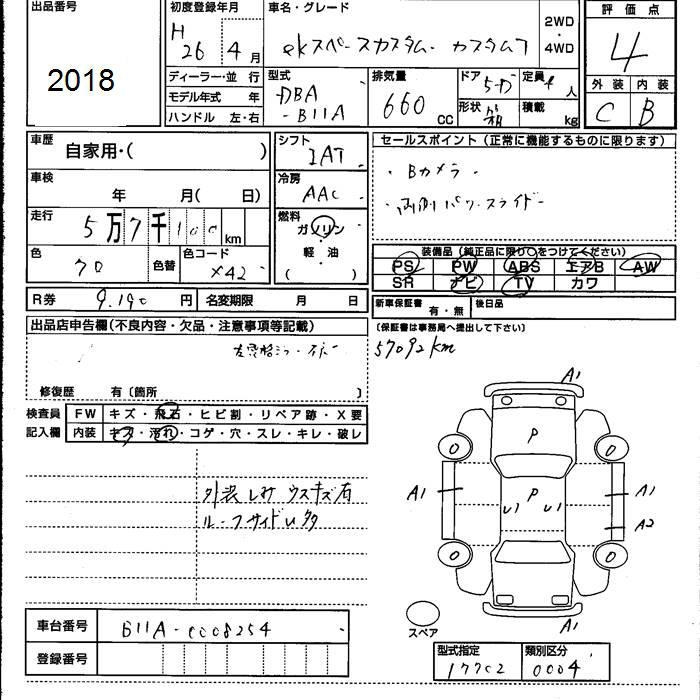 出品番号
2018
初度登録年月
H 26年 4月
車名・グレード
ekスペースカスタム カスタムT
2WD・4WD
評価点
4
外装 内装
C B
ディーラー・並行
モデル年式 年
ハンドル 左・右
型式
DBA-B11A
排気量
660 CC
ドア 5D
形状 箱
定員 4人
積載 kg
車歴
自家用・( )
車検
年 月( 日)
走行
5万7千100km
色
70
色替
色コード
X42
シフト
IAT
冷房
AAC
燃料
ガソリン・軽油・( )
セールスポイント(正常に機能するものに限ります)
・Bカメラ
・両側パワースライドー
装備品(純正品に限り○をつけてください)
PS PW ABS エアB AW
SR ナビ TV カワ
R券 9,190円
名変期限 月 日
新車保証書 有・無
後日品
(保証書は事務局へ提出して下さい)
57092km
出品店申告欄(不良内容・欠品・注意事項等記載)
修復歴 有〔箇所 〕
検査員記入欄
FW キズ・飛石・ヒビ割・リペア跡・X要
内装 キズ・汚れ・コゲ・穴・スレ・キレ・破レ
外装しみ ウスキズ有
ルーフサイドU多
A1
P
0 0
A1 U1 P U1 A1
A2
0 0
A1
スペア
車台番号 B11A-0008254
登録番号
型式指定 17702
類別区分 0004